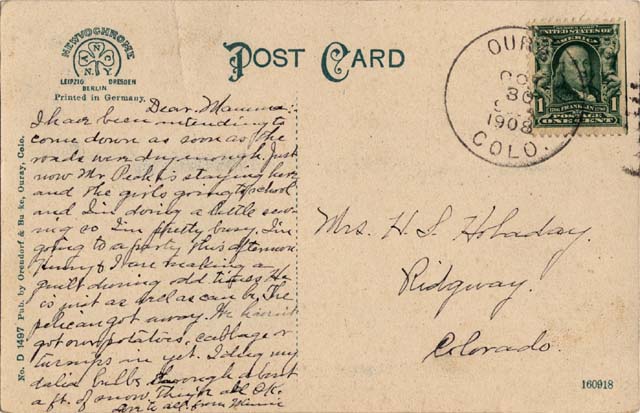 NEWVOCHROME
A N C
N.Y.
LEIPZIG DRESDEN
BERLIN
Printed in Germany.
POST CARD
OURAY
OC
30
1908
COLO.
SERIES 1902
UNITED STATES OF AMERICA
1706 FRANKLIN 1790
1 POSTAGE 1
ONE CENT
No. D 1497 Pub. by Orendorf & Burke, Ouray, Colo.
Dear Mamma:
I have been intending to
come down as soon as the
roads were dry enough. Just
now Mr. Peck is staying here
and the girls going to school
and I'm doing a little sew-
ing so I'm pretty busy. I'm
going to a party this afternoon.
& I are making a
quilt during odd times. He
is just as well as can be. The
pelican got away. We haven't
got our potatoes, cabbage or
turnips in yet. I dug my
dalia bulbs through about
a ft. of snow. They're all O.K.
to all from Minnie
Mrs. H. S. Holaday.
Ridgway.
Colorado.
160918